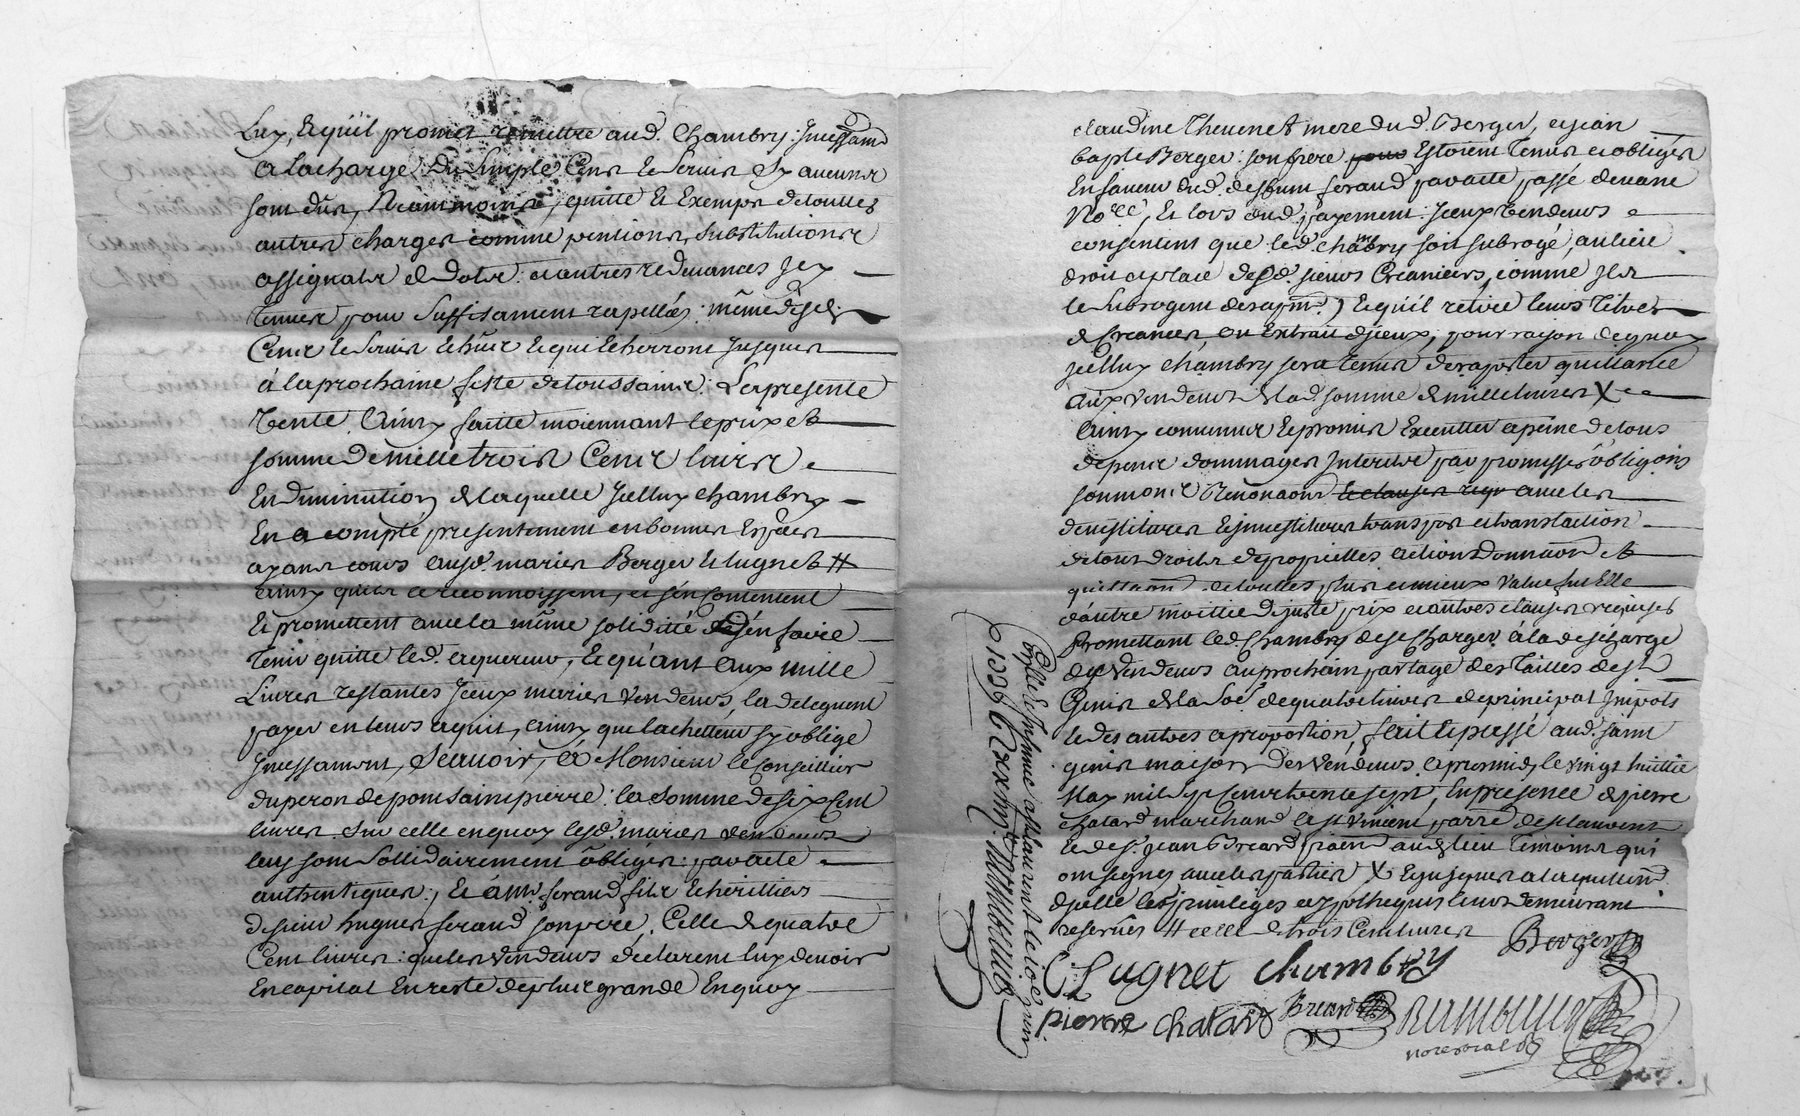 Luy, et qu'il promet remettre aud. Chambry: Incessamt
a la charge du simple Cens et servis sy aucuns
sont dûs, Neammoins, quitte et Exempt de touttes
autres charges comme pentions, substitutions
assignats de dots et autres redevances Jcy
tenues pour suffisament rapellées: même desd.
Cens et servis echûs et qui Echerront Jusques
à la prochaine feste de toussaints: La presente
Vente Ainsy faitte moiennant le prix et
somme de mille trois Cents livres
En diminution de laquelle Jcelluy chambry
En a compté presentement en bonnes Espèces
ayant cours auxd. mariés Berger et Lugnet #
ainsy qu'ils le reconnoissent, et s'en contentent
Et promettent avec la même soliditté de s'en faire
tenir quitte led. acquereur, et qu'ant aux mille
Livres restantes Jceux mariés vendeurs, la deleguent
payer en leurs aquit, ainsy que lachetteur sy oblige
Jncessament, Scavoir, à Monsieur le Conseillier
duperon de pont saint pierre: la somme de six Cent
livres Sur celle en quoy lesd. mariés vendeurs
luy sont sollidairement obligés: par acte
authentiques; et à Mr. feraud fils et heritier
de sieur hugues feraud son père, Celle de quatre
Cent livres: que les vendeurs déclarent luy devoir
En capital En reste de plus grande En quoy
claudine Thevenet mere dud. Berger, et jean
baptte Berger: son frere Estoient tenus et obligés
En faveur dud. deffunt feraud par acte passé devant
Nore Et lors dud. payement: Jceux vendeurs
consentent que led. chambry soit subrogé, au lieu
droit et place desd. sieurs Creanciers, comme Jls
le subrogent derajmt.) Et qu'il retire leurs titres
de Creances, ou Extrait d'jceux, pour raison de quoy
Jcelluy chambry sera tenus de raporter quittance
aux vendeurs de lad. somme de mille livres X
Ainsy convenus Et promis Executter a peine de tous
depens dommages Interets par promisses obligons
soumons Renonaons et clauses reqs avec les
devestitures et jnvestitures transport et translation
de tous droits de propriettés actions donnaon et
quittaon de touttes plus et mieux value fut Elle
d'autre moittié de juste prix et autres clauses requises
Promettant led. Chambry de se Charger à la descharge
des Vendeurs au prochain partage des tailles de st
Genis de la Soe de quatre livres de principal Jmpots
et des autres a proportion, fait Et passé aud. saint
genis maison des vendeurs. apresmidy le vingt huittie
May mil sept cent trente sept, En presence de pierre
chatard marchand de st vincent parre de st laurent
et de sr. jean Breard praen aud. lieu temoins qui
ont signes avec les parties X Et jusques a la quittance
d'jcelle les privilèges et ypotheques leurs demeurant
reservés # celle de trois Cent livres
Berger
C Lugnet chambry
pierre chatard Breard
Nore royal